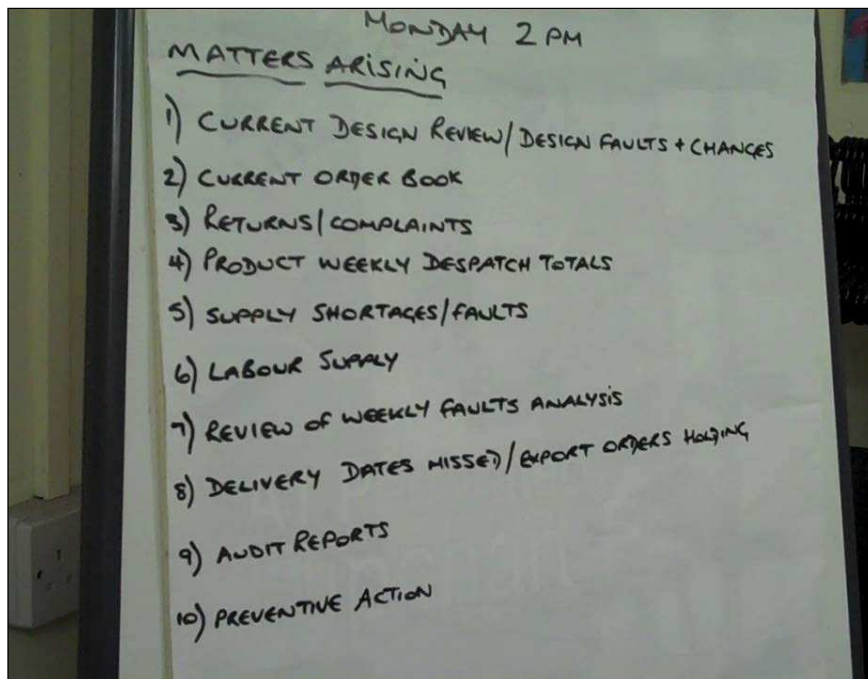 MONDAY 2 PM
MATTERS ARISING
1) CURRENT DESIGN REVIEW/DESIGN FAULTS + CHANGES
2) CURRENT ORDER BOOK
3) RETURNS/COMPLAINTS
4) PRODUCT WEEKLY DESPATCH TOTALS
5) SUPPLY SHORTAGES/FAULTS
6) LABOUR SUPPLY
7) REVIEW OF WEEKLY FAULTS ANALYSIS
8) DELIVERY DATES MISSED/EXPORT ORDERS HOLDING
9) AUDIT REPORTS
10) PREVENTIVE ACTION